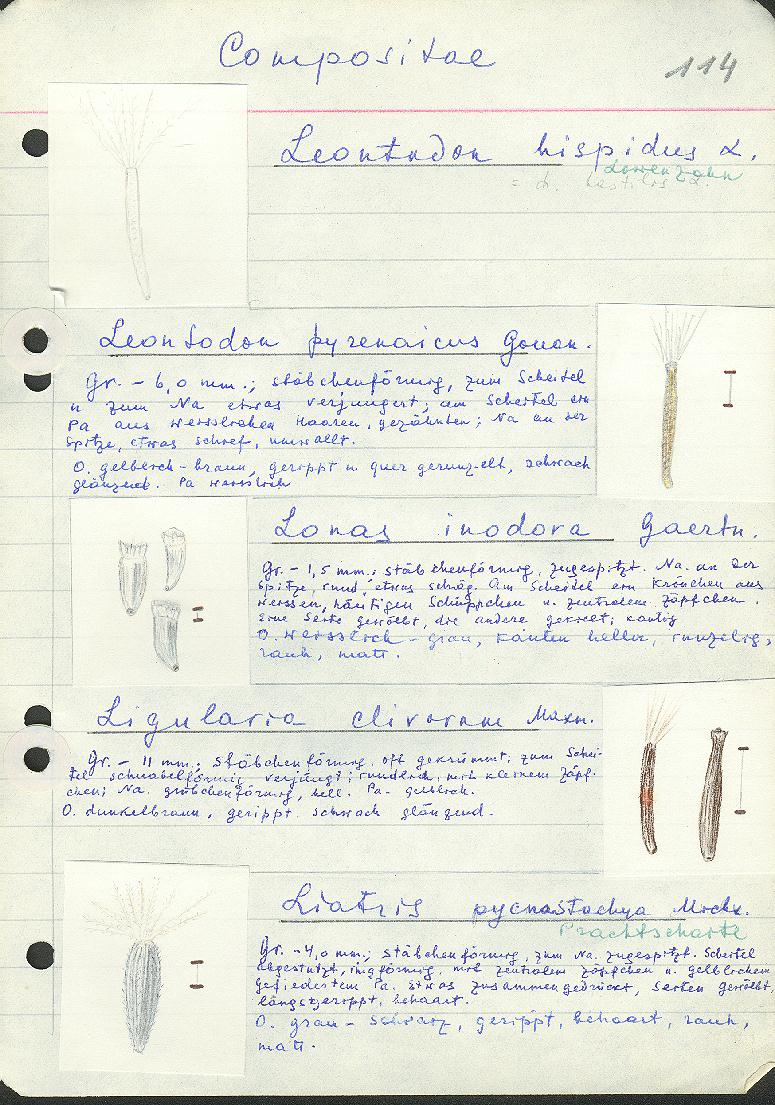 Compositae
114
Leontodon hispidus L.
Löwenzahn
= L. hastilis L.
Leontodon pyrenaicus Gouan.
Gr. - 6,0 mm.; stäbchenförmig, zum Scheitel
u zum Na etwas verjüngert; am Scheitel ein
Pa aus weisslichen Haaren, gezähnten; Na an der
Spitze, etwas schief, umwallt.
O. gelblich-braun, gerippt u. quer gerunzelt, schwach
glänzend. Pa weisslich
Lonas inodora Gaertn.
Gr. - 1,5 mm.; stäbchenförmig, zugespitzt. Na. an der
Spitze, rund, etwas schräg. Am Scheitel ein Krönchen aus
weissen, häutigen Schüppchen u. zentralem Zäpfchen.
eine Seite gewölbt, die andere gekielt; kantig
O. weisslich-grau, Kanten heller, runzelig,
rauh, matt.
Ligularia clivorum Maxm.
Gr. - 11 mm.; stäbchenförmig, oft gekrümmt; zum Schei-
tel schnabelförmig verjüngt; rundlich, mit kleinem Zäpf-
chen; Na. grübchenförmig, hell. Pa- gelblich.
O. dunkelbraun, gerippt schwach glänzend.
Liatris pycnostachya Michx.
Prachtscharte
Gr. - 4,0 mm.; stäbchenförmig, zum Na. zugespitzt. Scheitel
abgestutzt, ringförmig, mit zentralem Zäpfchen u. gelblichem
gefiedertem Pa. Etwas zusammengedrückt, Seiten gewölbt,
längsgerippt, behaart.
O. grau-schwarz, gerippt, behaart, rauh,
matt.